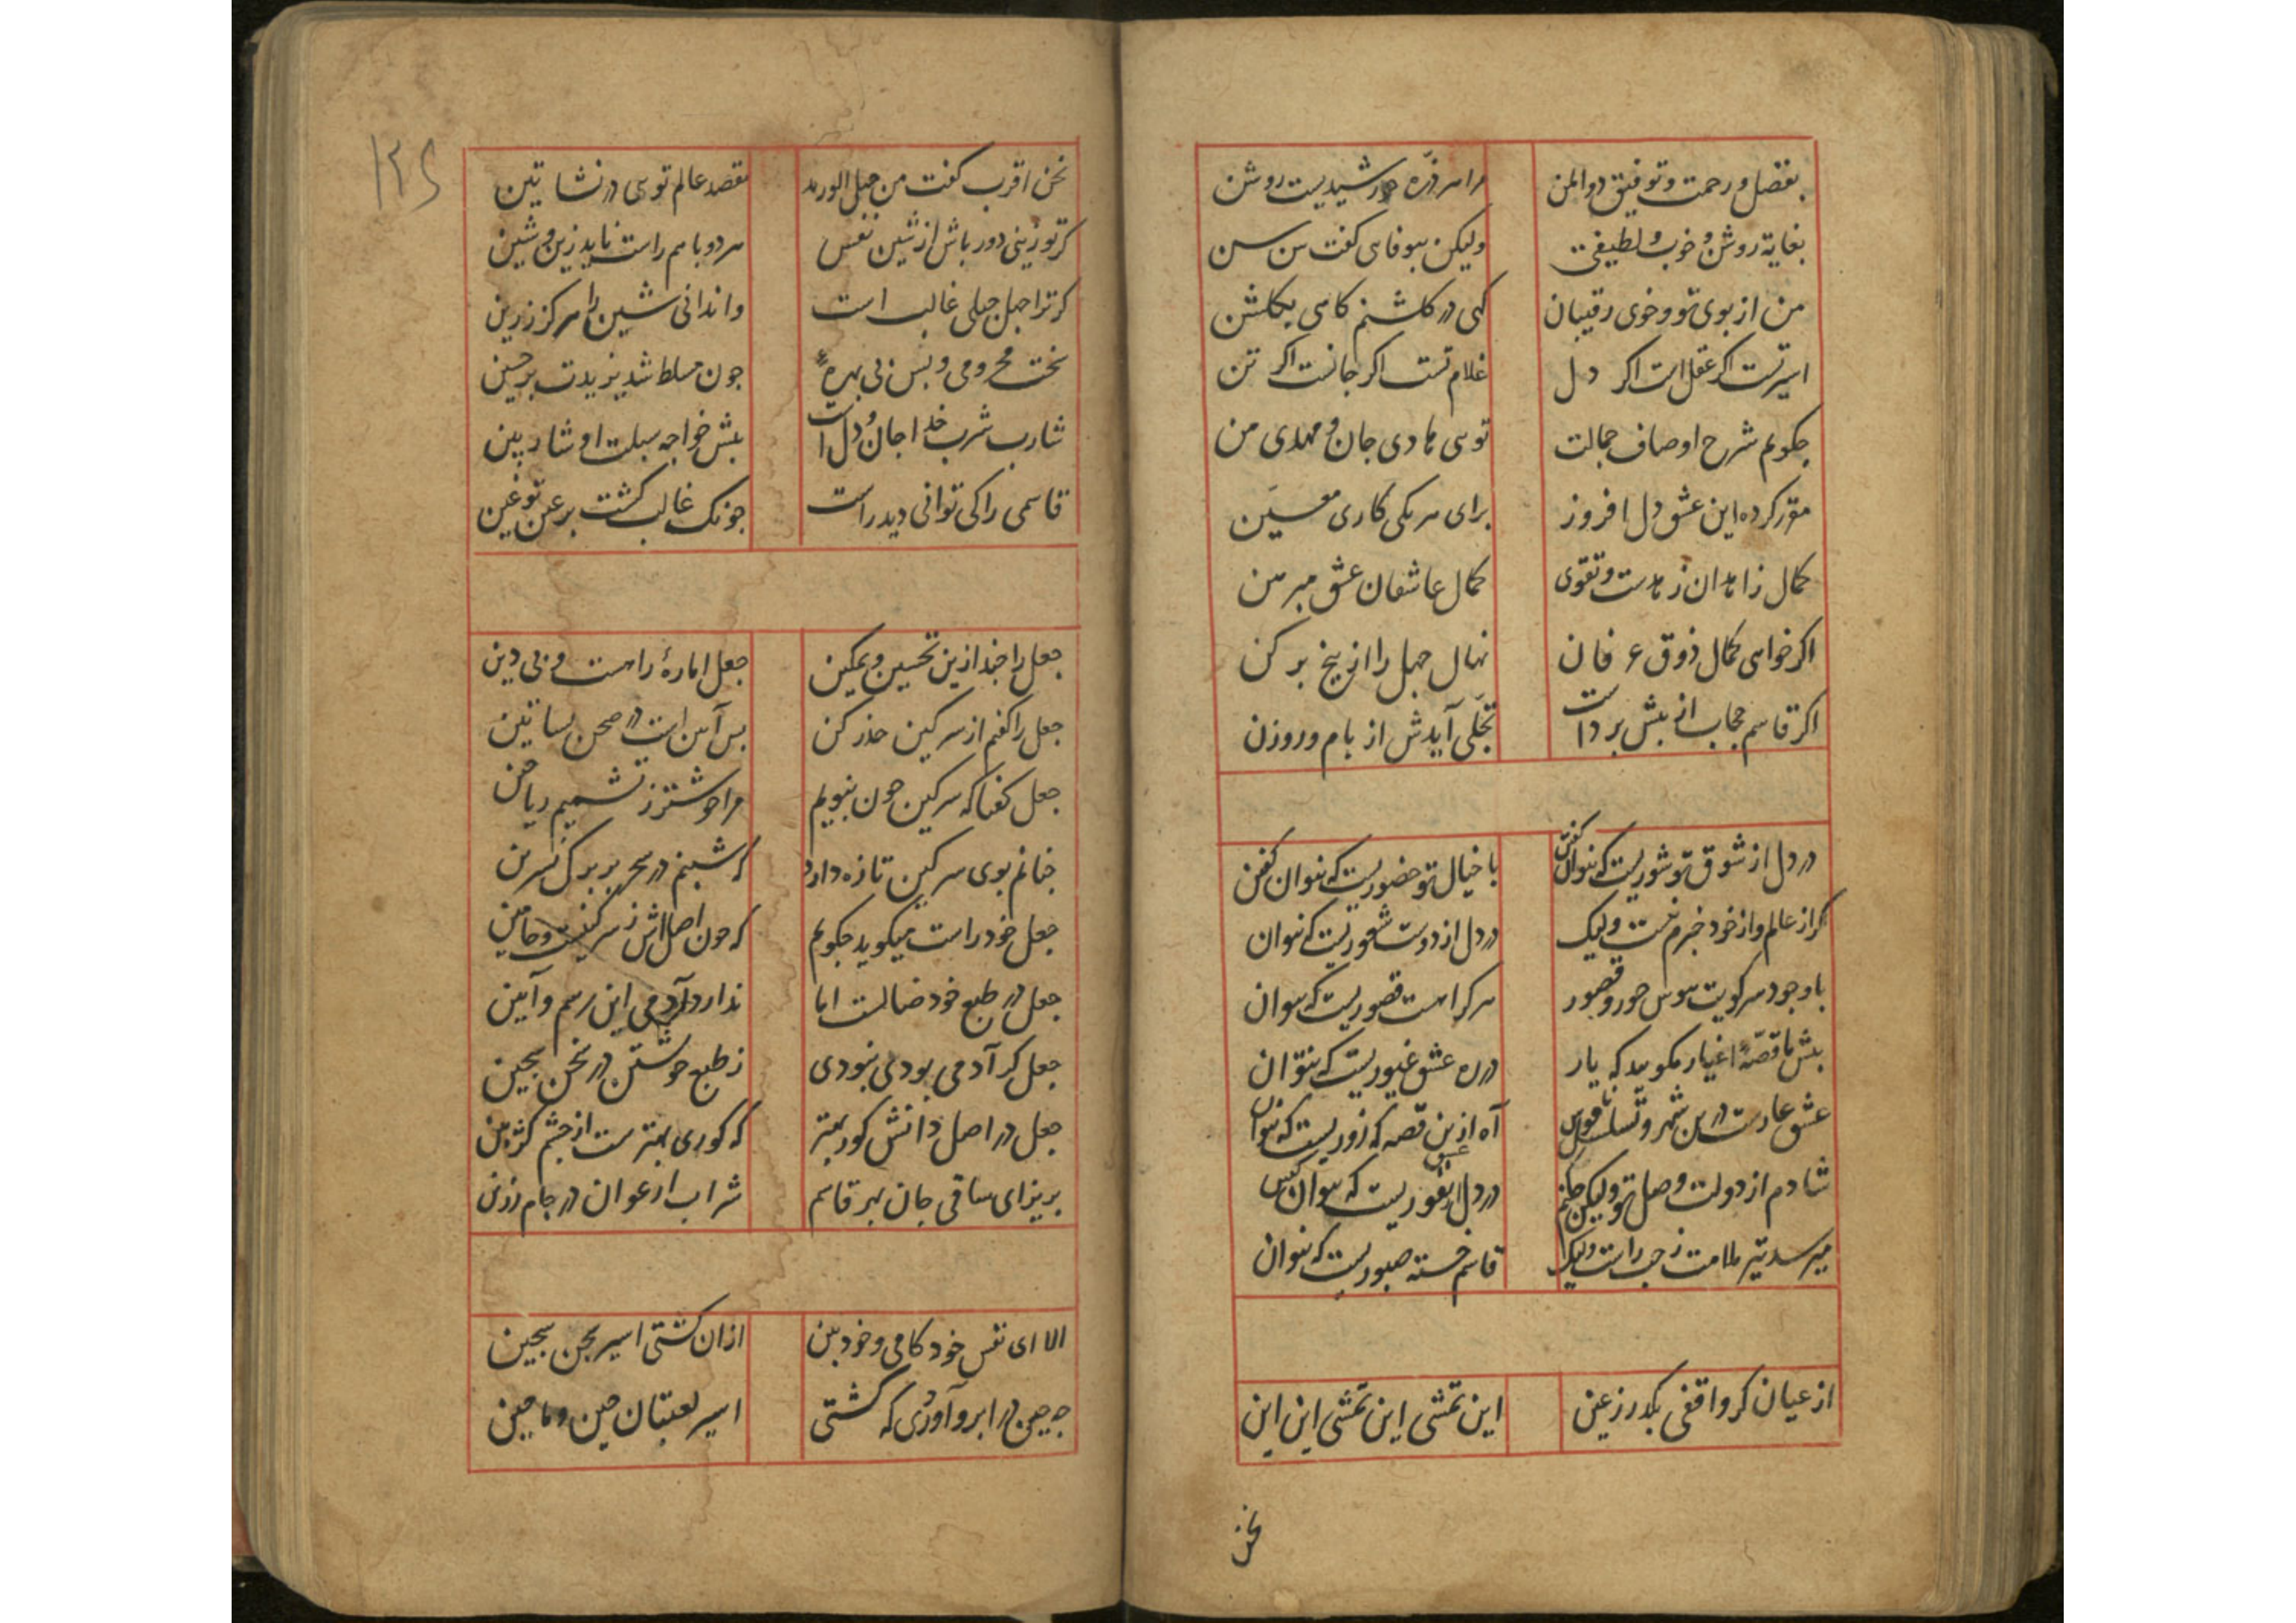 بفضل و رحمت و توفیق ذوالمن مرا هر ذره خورشیدیست روشن
بغایة روشن و خوب و لطیفی ولیکن بیوفایی گفت سن سن
من از بوی تو و خوی رقیبان گهی در گلشنم گاهی بگلخن
اسیر تست اگر عقل است اگر دل غلام تست اگر جانست اگر تن
جگویم شرح اوصاف جمالت تویی هادی جان و مهدی من
مقرر کرده این عشق دل افروز برای هر یکی کاری معین
کمال زاهدان زهدست و تقوی کمال عاشقان عشق مبرهن
اگر خواهی کمال ذوق عرفان نهال جهل را از بیخ برکن
اگر قاسم حجاب از پیش برداشت تجلّی آیدش از بام و روزن
در دل از شوق تو شوریست که نتوان گفتن با خیال تو حضوریست که نتوان گفتن
گر از عالم و از خود خبرم نیست ولیک در دل از دوست شعوریست که نتوان
با وجود سر کویت هوس حور و قصور هر کرا هست قصوریست که نتوان
پیش ما قصهٔ اغیار مگویید که یار در ره عشق غیوریست که نتوان
عشق عارست درین شهر و تسلسل ناموس آه ازین قصه که زوریست که نتوان
شادم از دولت وصل تو ولیکن چکنم در دل نفوریست که نتوان گفتن
میرسد تیر ملامت ز چپ و راست ولیک قاسم خسته صبوریست که نتوان
از عیان گر واقفی بگذر ز عین این تمشی این تمشی این این
نحن
۱۲۵
نحن اقرب گفت من حبل الورید مقصد عالم تویی در نشاتین
گر تو زینی دور باش از شین نفس هر دو با هم راست ناید زین و شین
گر ترا جهل جبلی غالب است وا ندانی شین را هرگز ز زین
سخت محرومی و بس بی بهرهٔ جون مسلط شد یزیدت بر حسین
شارب شرب خدا جان و دل است پیش خواجه سبلت او شاربین
قاسمی را کی توانی دید راست جونک غالب گشت بر عین تو غین
جعل را جند ازین تحسین و تمکین جعل اماره را هست و بی دین
جعل را گفتم از سرگین حذر کن بس آس است در صحن بساتین
جعل گفتا که سرگین جون نبویم مرا خوشتر ز تشمیم ریاحین
جنانم بوی سرگین تازه دارد که شبنم در سحر بر برگ نسرین
جعل خود راست میگوید جگویم که جون اصل اش ز سرگینست و حامین
جعل در طبع خود ضالست اما ندارد آدمی این رسم و آیین
جعل گر آدمی بودی نبودی ز طبع خویشتن در سخن سجین
جعل در اصل دانش کور بهتر که کوری بهترست از جشم کژبین
بریز ای ساقی جان بهر قاسم شراب ارغوان در جام زرین
الا ای نفس خودکامی و خودبین ازان گشتی اسیر سجن سجین
جه جین در ابرو آوردی که گشتی اسیر لعبتان جین و ماجین